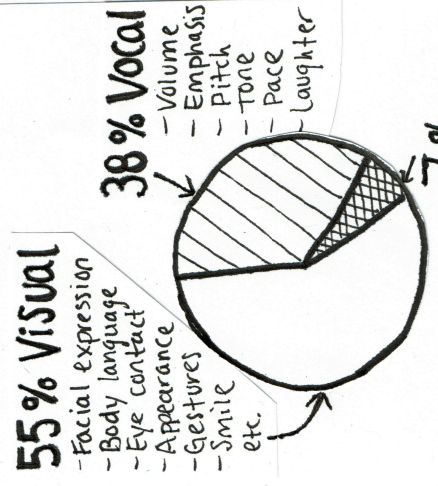 55% Visual
- Facial expression
- Body language
- Eye contact
- Appearance
- Gestures
- Smile
etc.
38% Vocal
- Volume
- Emphasis
- Pitch
- Tone
- Pace
- Laughter